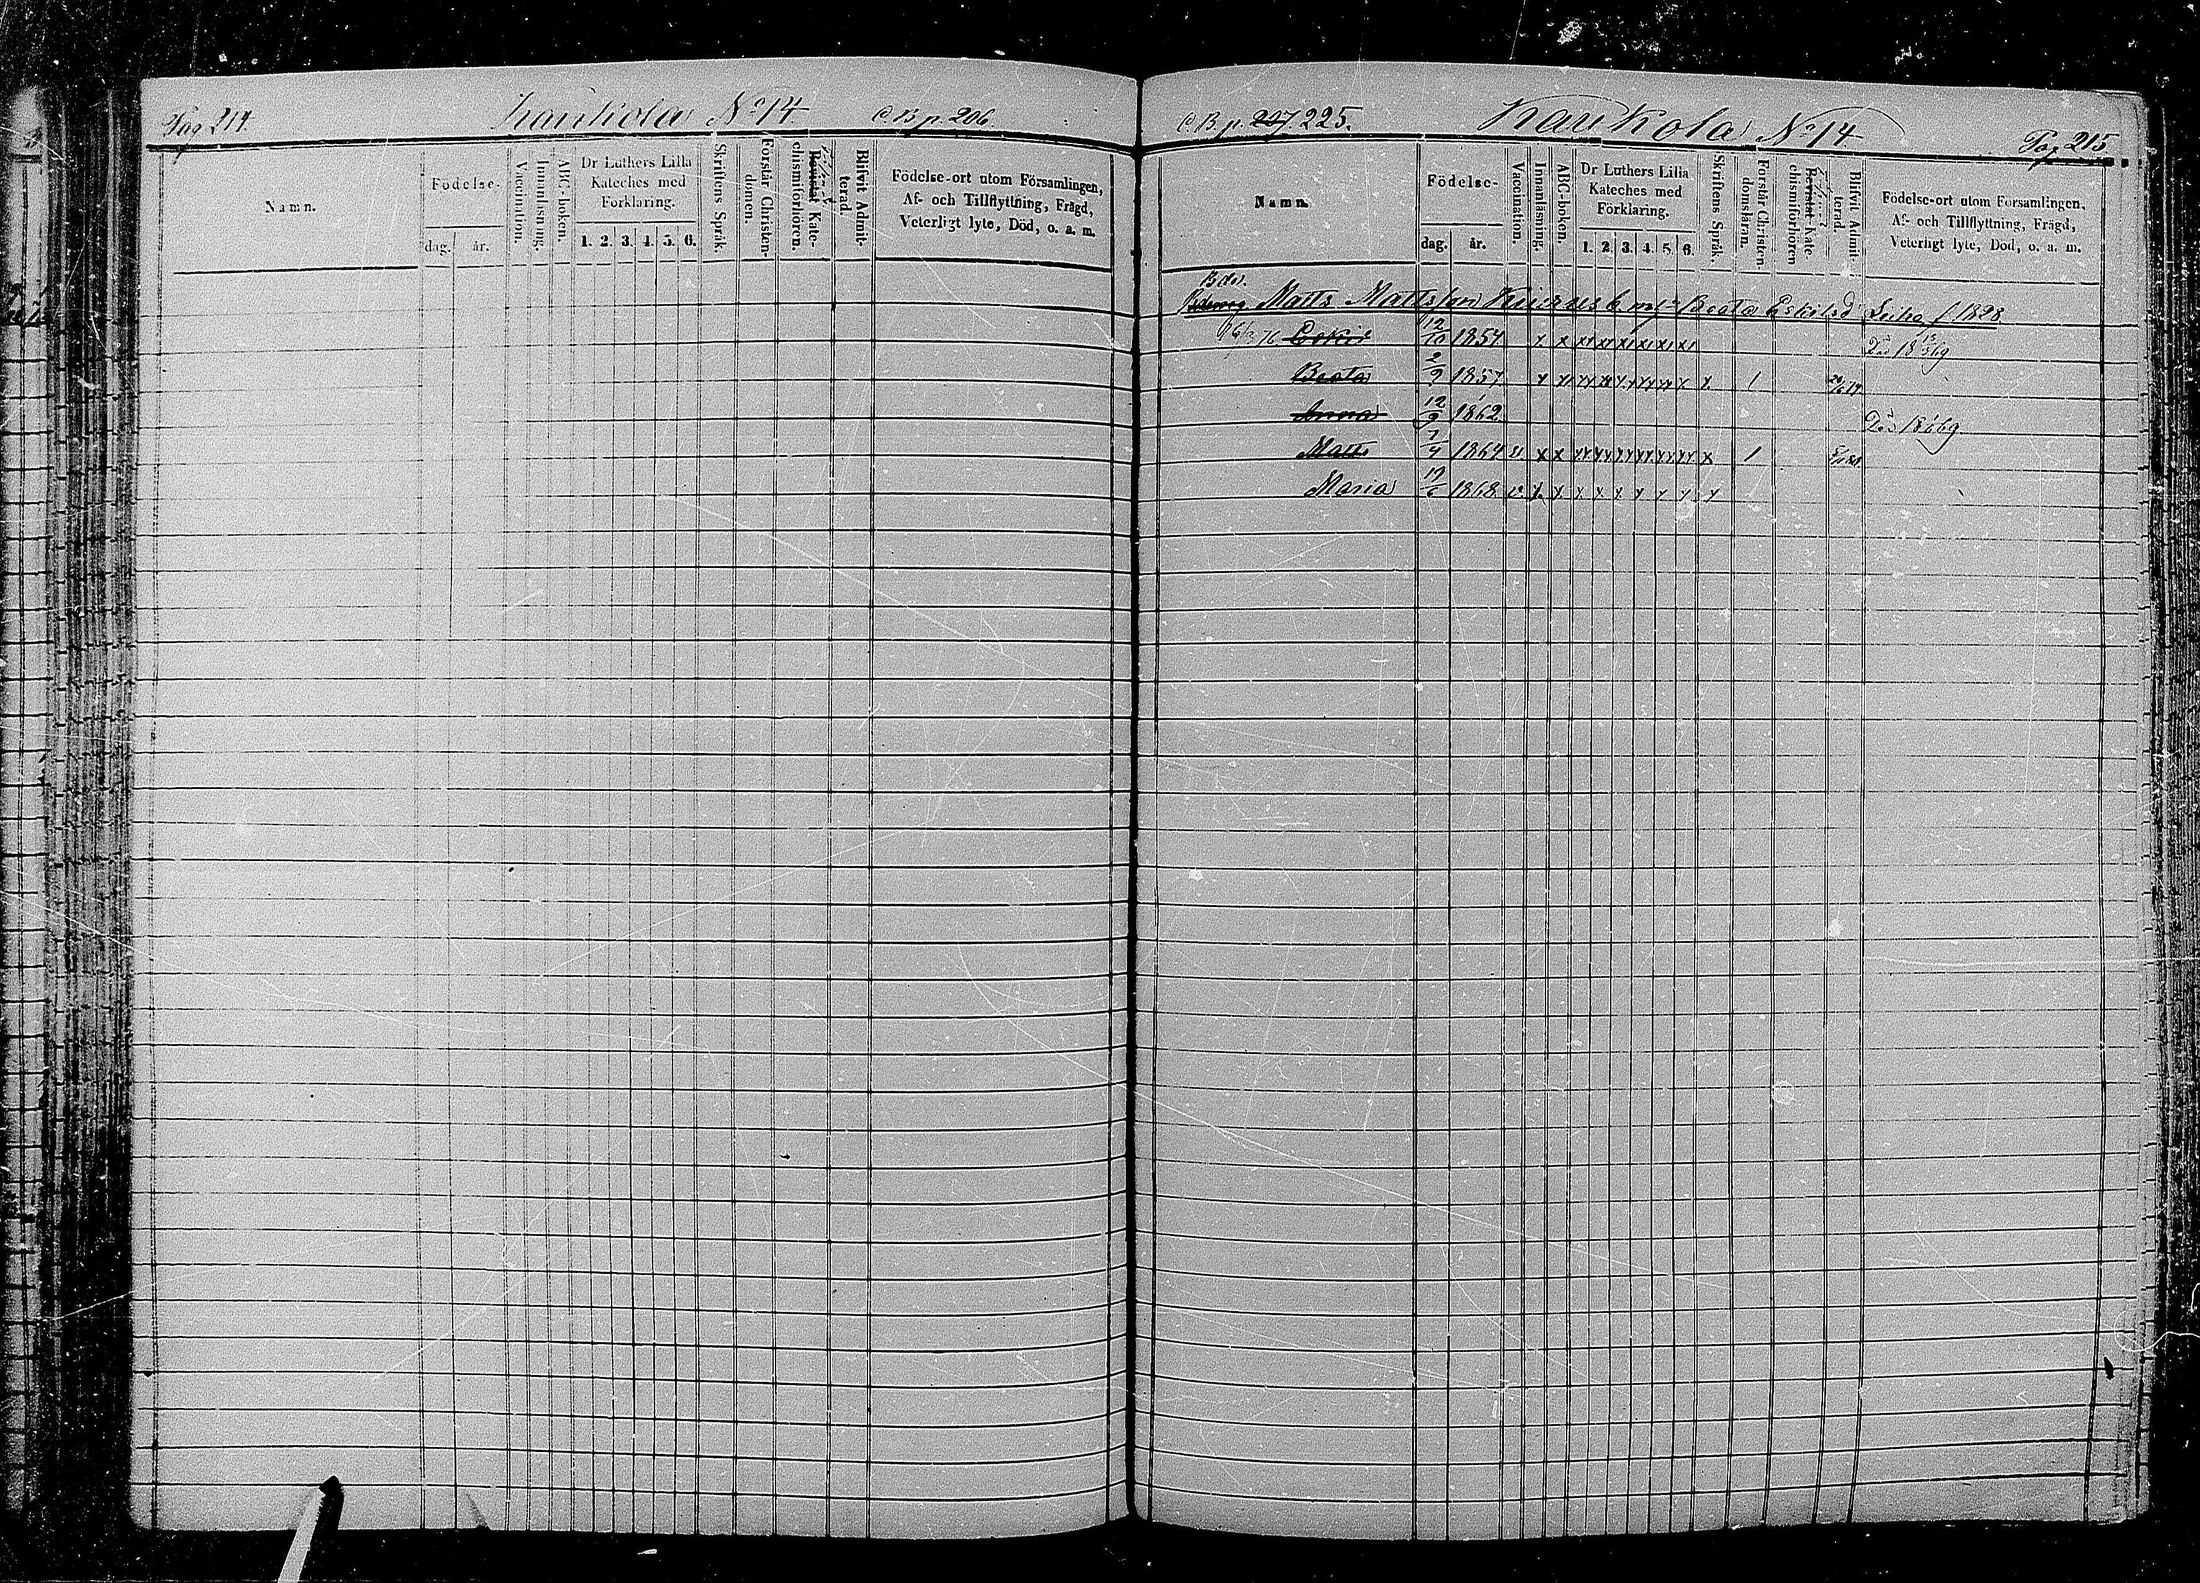 Pag 214 Kaukola No 14 C B p. 206
Namn.
Födelse-
dag. år.
Vaccination.
Innanläsning.
ABC-boken.
Dr Luthers Lilla Kateches med Förklaring.
1. 2. 3. 4. 5. 6.
Skriftens Språk.
Förstår Christendomen.
Bevistat Katechismiförhören.
Blifvit Admitterad.
Födelse-ort utom Församlingen,
Af- och Tillflyttning, Frägd,
Veterligt lyte, Död, o. a. m.
C. B. p. 207. 225. Kaukola No 14 Pag 215
Namn.
Födelse-
dag. år.
Vaccination.
Innanläsning.
ABC-boken.
Dr Luthers Lilla Kateches med Förklaring.
1. 2. 3. 4. 5. 6.
Skriftens Språk.
Förstår Christendomsläran.
Bevistat Katechismiförhören
Blifvit Admitterad.
Födelse-ort utom Forsamlingen.
Af- och Tillflyttning, Frägd,
Veterligt lyte, Död, o. a. m.
Bdn.
Matts Mattsson Beata Eskilsd f 1828
12/10 1854 x x xx xx xx xx xx xx
Beata 2/9 1857 x x x 1
Anna 12/9 1862
Matts 7/4 1864 v x x xx xx xx xx xx xx x 1
Maria 19/6 1868 v x x x x x x x x x